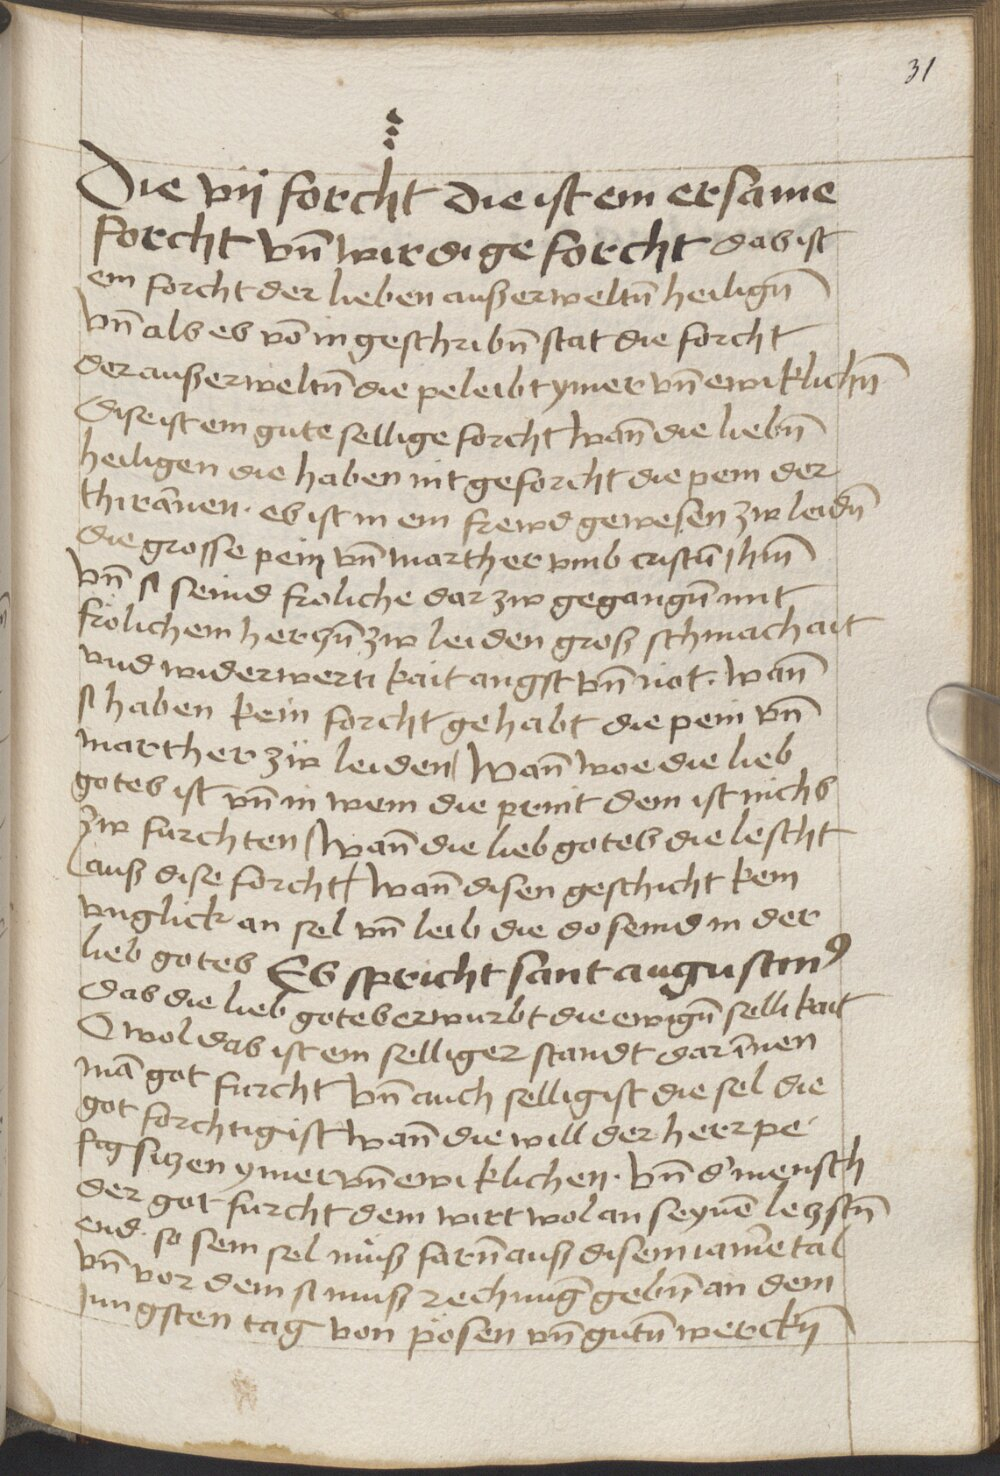 31
Die vij forcht die ist ein ersame
forcht vn̄ wirdige forcht das ist
ein forcht der lieben außerweltn̄ heilign̄
vn̄ als es vō in geschribn̄ stat die forcht
der außerweltn̄ die peleibt ymer vn̄ ewiklichn̄
Dise ist ein gute sellige forcht wan̄ die liebn̄
heiligen die haben nit geforcht die pein der
thirān̄en · es ist in ein frewd gewesen zw leidn̄
die grosse pein vn̄ marther vmb cristū ihm̄
vn̄ si seind froliche dar zw gegangn̄ mit
frölichem herczn̄ zw leiden groß schmachait
vnd widerwertikait angst vn̄ not · wan̄
si haben kein forcht gehabt die pein vn̄
marther zw leiden / Wan̄ woe die lieb
gotes ist vn̄ in wem die print dem ist nichs
zw furchten / wan̄ die lieb gotes die lescht
auß dise forcht / wan̄ disen geschicht kein
vnglick an sel vn̄ leib die do seind in der
lieb gotes Es spricht sant augustin9
Das die lieb gotes erwurbt die ewign̄ sellikait
O wol das ist ein selliger standt darīnen
mā got furcht vn̄ auch sellig ist die sel die
got forchtig ist wan̄ die will der herr pe
siczen ymer vn̄ ewiklichen · vn̄ d' mensch
der got furcht dem wirt wol an seynē leczstn̄
end · so sein sel muß farn̄ auß disem iamētal
vn̄ vor dem si muß rechnūg gebn̄ an dem
Jungsten tag von pösen vn̄ gutn̄ werckn̄